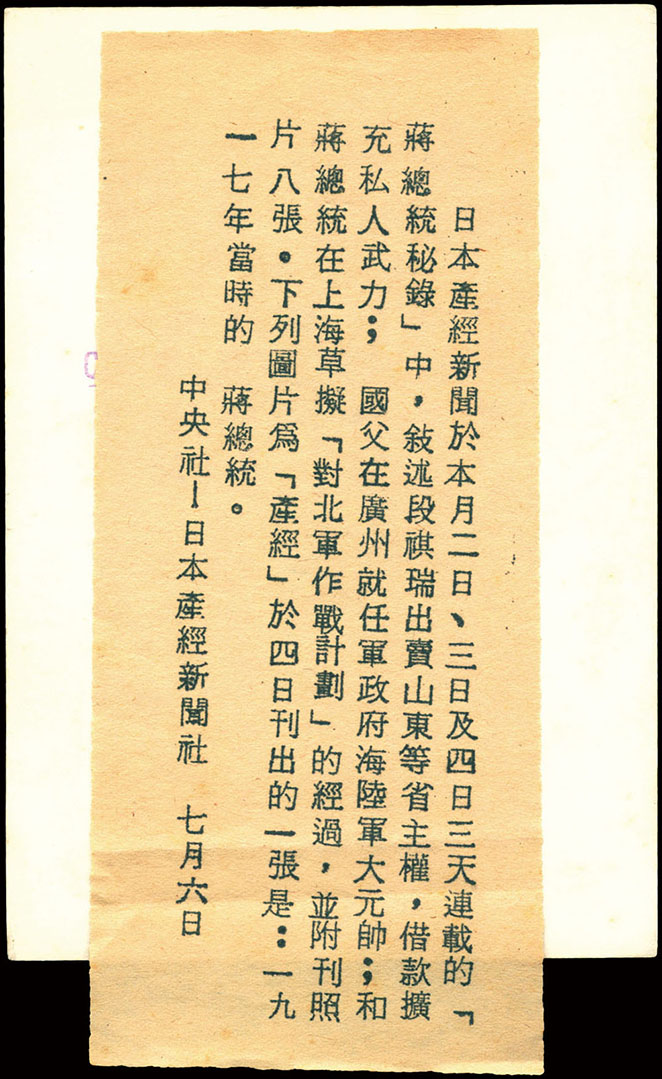 日本產經新聞於本月二日、三日及四日三天連載的「
蔣總統秘錄」中，敍述段祺瑞出賣山東等省主權，借款擴
充私人武力； 國父在廣州就任軍政府海陸軍大元帥；和
蔣總統在上海草擬「對北軍作戰計劃」的經過，並附刊照
片八張。下列圖片爲「產經」於四日刊出的一張是：一九
一七年當時的 蔣總統。
中央社－日本產經新聞社 七月六日